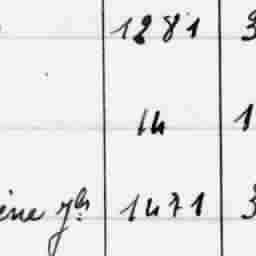 1281 3
14 1
ène 1471 3